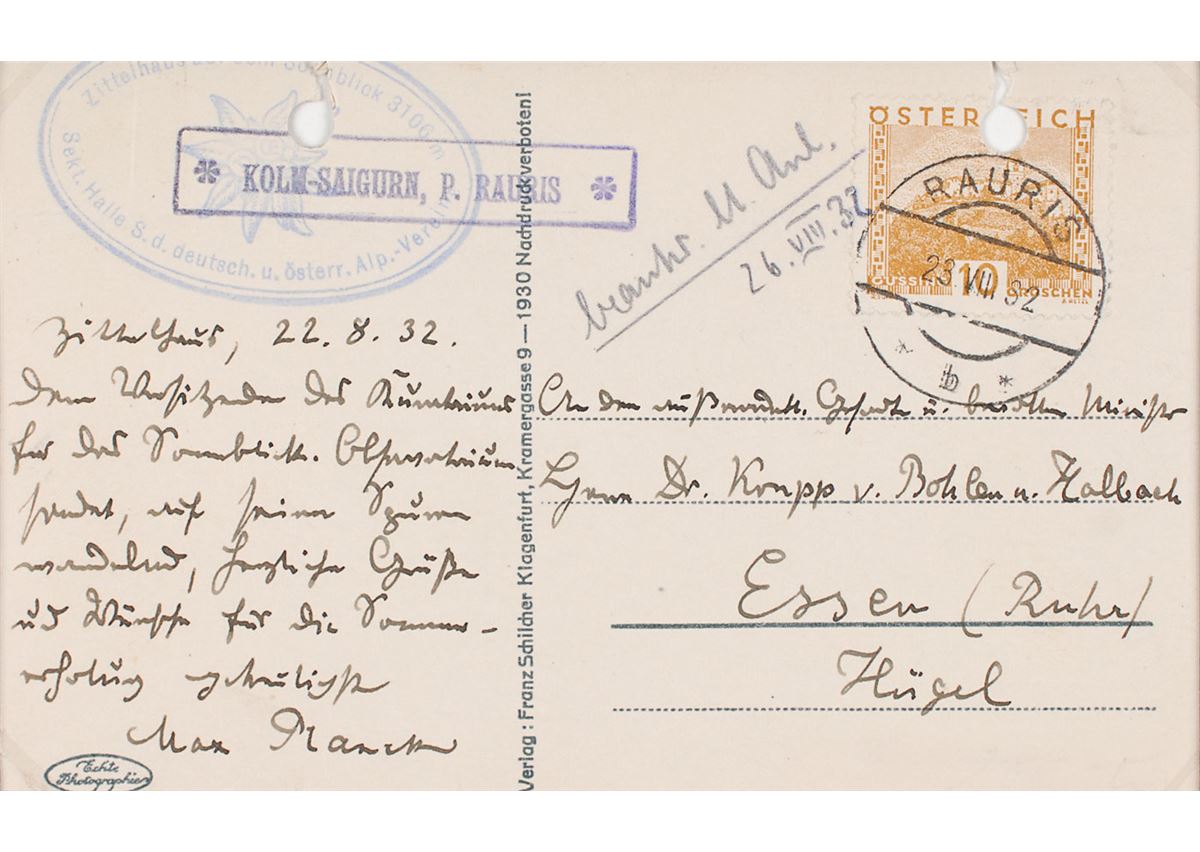 Zittelhaus auf dem Sonnblick 3106 m
Sekt. Halle S. d. deutsch. u. österr. Alp.-Verein
* KOLM-SAIGURN, P. RAURIS *
beantw. M. Anl.
26.VIII.32
ÖSTERREICH
GÜSSING 10 GROSCHEN
RAURIS
23.VIII 32
* b *
Zittelhaus, 22.8.32.
Dem Vorsitzenden des Kuratoriums
für das Sonnblick-Observatorium
sendet, auf seinen Spuren
wandelnd, herzliche Grüße
und Wünsche für die Sommer-
erholung
Max Planck
Echte
Photographie
Verlag: Franz Schilcher Klagenfurt, Kramergasse 9 — 1930 Nachdruck verboten!
An den außerordtl. Gesandten u. bevollm. Minister
Herrn Dr. Krupp v. Bohlen u. Halbach
Essen (Ruhr)
Hügel